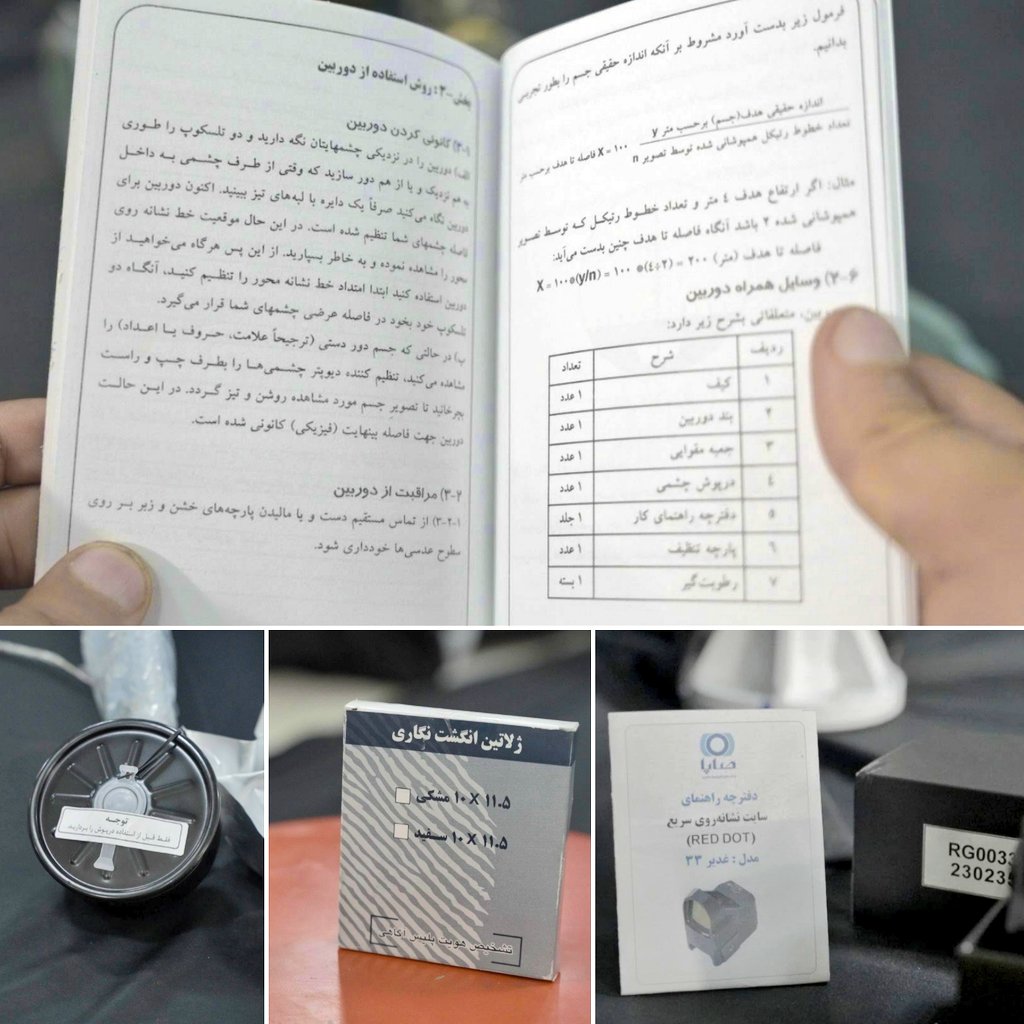 بخش-۳: روش استفاده از دوربین
۳-۱) کانونی کردن دوربین
الف) دوربین را در نزدیکی چشمهایتان نگه دارید و دو تلسکوپ را طوری
به هم نزدیک و یا از هم دور سازید که وقتی از طرف چشمی به داخل
دوربین نگاه می‌کنید صرفاً یک دایره با لبه‌های تیز ببینید. اکنون دوربین برای
فاصله چشمهای شما تنظیم شده است. در این حال موقعیت خط نشانه روی
محور را مشاهده نموده و به خاطر بسپارید. از این پس هرگاه می‌خواهید از
دوربین استفاده کنید ابتدا امتداد خط نشانه محور را تنظیم کنید، آنگاه دو
تلسکوپ خود بخود در فاصله عرضی چشمهای شما قرار می‌گیرد.
ب) در حالتی که جسم دور دستی (ترجیحاً علامت، حروف یا اعداد) را
مشاهده می‌کنید، تنظیم کننده دیوپتر چشمی‌ها را بطرف چپ و راست
بچرخانید تا تصویر جسم مورد مشاهده روشن و تیز گردد. در این حالت
دوربین جهت فاصله بینهایت (فیزیکی) کانونی شده است.
۳-۲) مراقبت از دوربین
۳-۲-۱) از تماس مستقیم دست و یا مالیدن پارچه‌های خشن و زبر بر روی
سطوح عدسی‌ها خودداری شود.
فرمول زیر بدست آورد مشروط بر آنکه اندازه حقیقی جسم را بطور تجربی
بدانیم.
اندازه حقیقی هدف(جسم) برحسب متر y
تعداد خطوط رتیکل همپوشانی شده توسط تصویر n
X = ۱۰۰ فاصله تا هدف برحسب متر
مثال: اگر ارتفاع هدف ٤ متر و تعداد خطوط رتیکل که توسط تصویر
همپوشانی شده ۲ باشد آنگاه فاصله تا هدف چنین بدست می‌آید:
فاصله تا هدف (متر) X = ۱۰۰*(y/n) = ۱۰۰ *(٤÷۲) = ۲۰۰
۲-۶) وسایل همراه دوربین
دوربین، متعلقاتی بشرح زیر دارد:
ردیف شرح تعداد
۱ کیف ۱ عدد
۲ بند دوربین ۱ عدد
۳ جعبه مقوایی ۱ عدد
٤ درپوش چشمی ۱ عدد
۵ دفترچه راهنمای کار ۱ جلد
۶ پارچه تنظیف ۱ عدد
۷ رطوبت‌گیر ۱ بسته
توجه
فقط قبل از استفاده درپوش را بردارید
ژلاتین انگشت نگاری
۱۱.۵ X ۱۰ مشکی
۱۱.۵ X ۱۰ سفید
تشخیص هویت پلیس آگاهی
صاپا
دفترچه راهنمای
سایت نشانه‌روی سریع
(RED DOT)
مدل : غدیر ۳۳
RG0033
23023